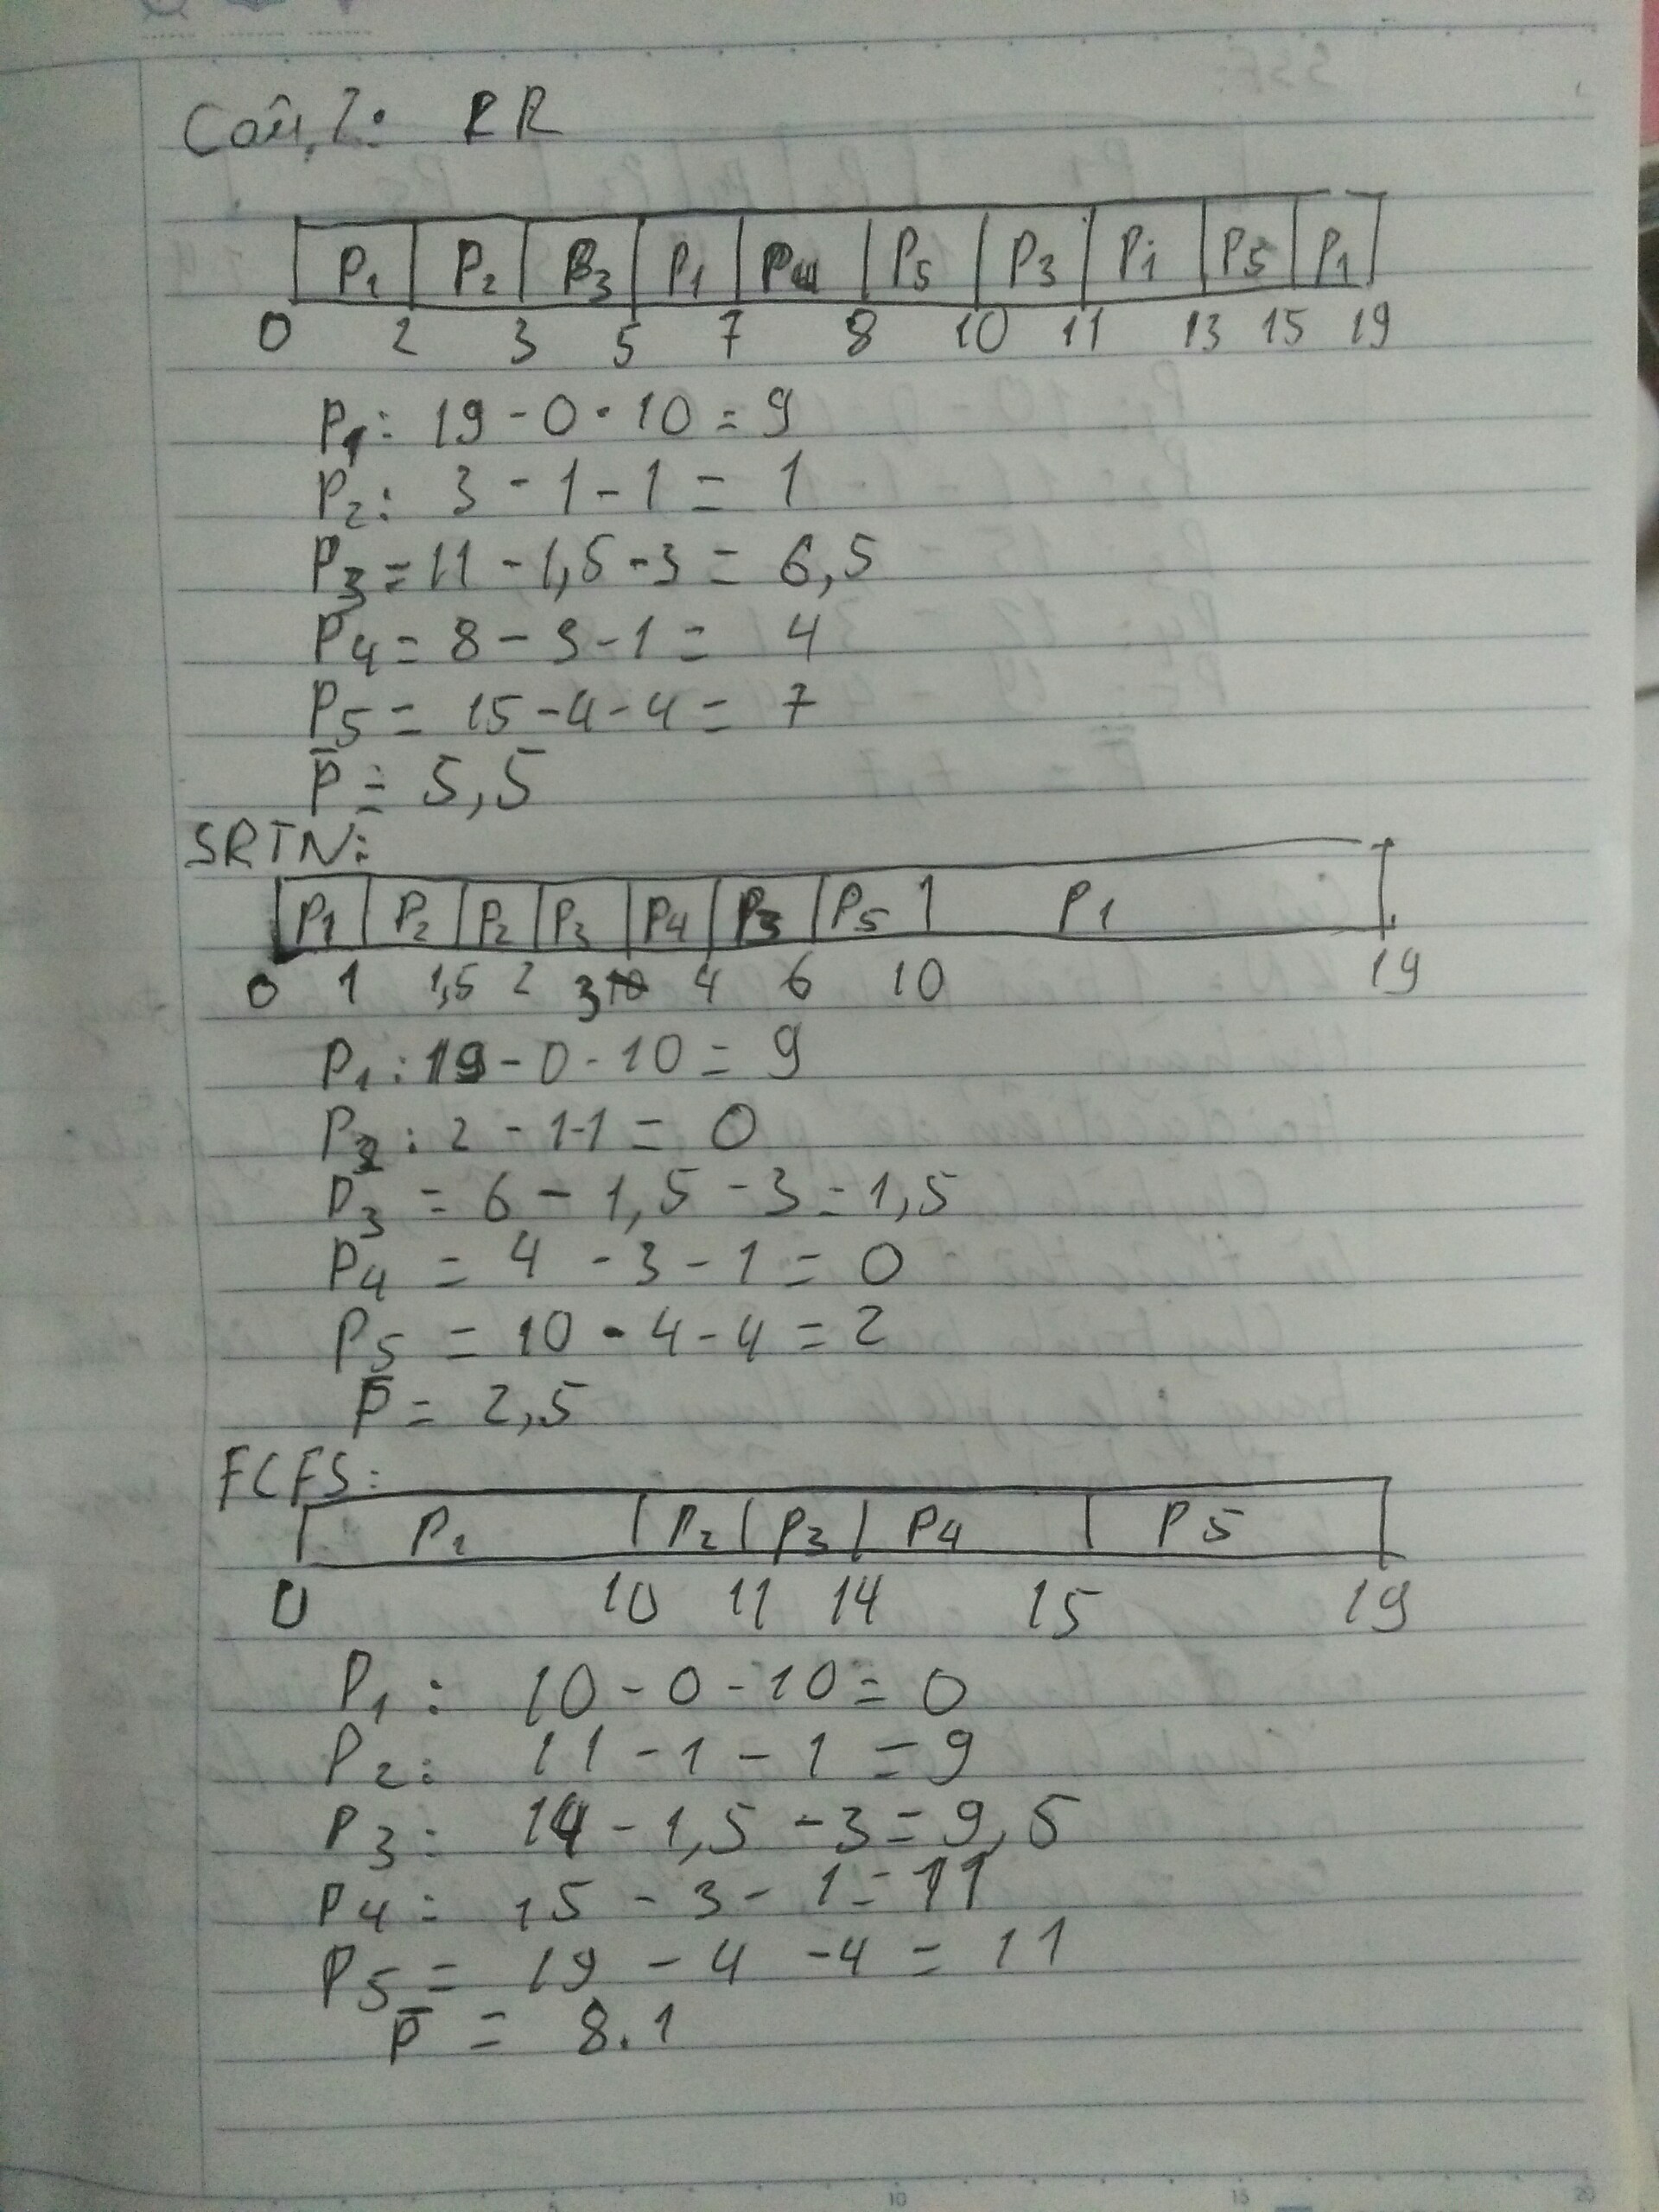 Câu 2: RR
P1 P2 P3 P1 P4 P5 P3 P1 P5 P1
0 2 3 5 7 8 10 11 13 15 19
P1: 19 - 0 - 10 = 9
P2: 3 - 1 - 1 = 1
P3 = 11 - 1,5 - 3 = 6,5
P4 = 8 - 3 - 1 = 4
P5 = 15 - 4 - 4 = 7
P̅ = 5,5
SRTN:
P1 P2 P2 P3 P4 P3 P5 P1
0 1 1,5 2 3 4 6 10 19
P1: 19 - 0 - 10 = 9
P2: 2 - 1 - 1 = 0
P3 = 6 - 1,5 - 3 = 1,5
P4 = 4 - 3 - 1 = 0
P5 = 10 - 4 - 4 = 2
P̅ = 2,5
FCFS:
P1 P2 P3 P4 P5
0 10 11 14 15 19
P1: 10 - 0 - 10 = 0
P2: 11 - 1 - 1 = 9
P3: 14 - 1,5 - 3 = 9,5
P4: 15 - 3 - 1 = 11
P5 = 19 - 4 - 4 = 11
P̅ = 8.1
5 10 15 20